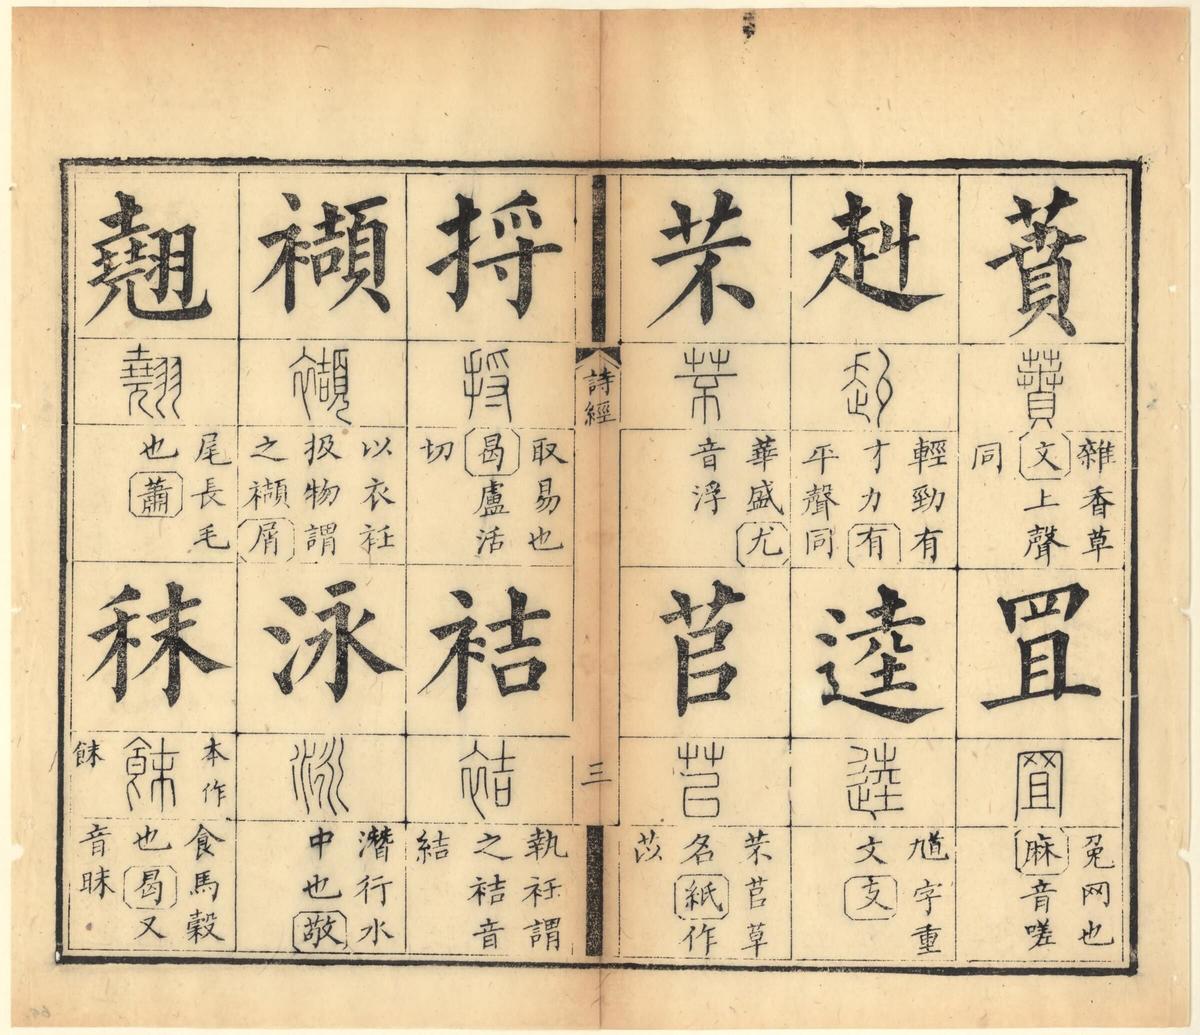 蕡
蕡
雜香草
文上聲
同
罝
罝
兔网也
麻音嗟
赳
赳
輕勁有
才力有
平聲同
逵
逵
馗字重
文支
芣
芣
華盛尤
音浮
苢
苢
芣苢草
名紙作
苡
詩經
三
捋
捋
取易也
曷盧活
切
袺
袺
執衽謂
之袺音
結
襭
襭
以衣衽
扱物謂
之襭屑
泳
泳
潛行水
中也敬
翹
翹
尾長毛
也蕭
秣
本作
䬴
䬴
食馬穀
也曷又
音眜